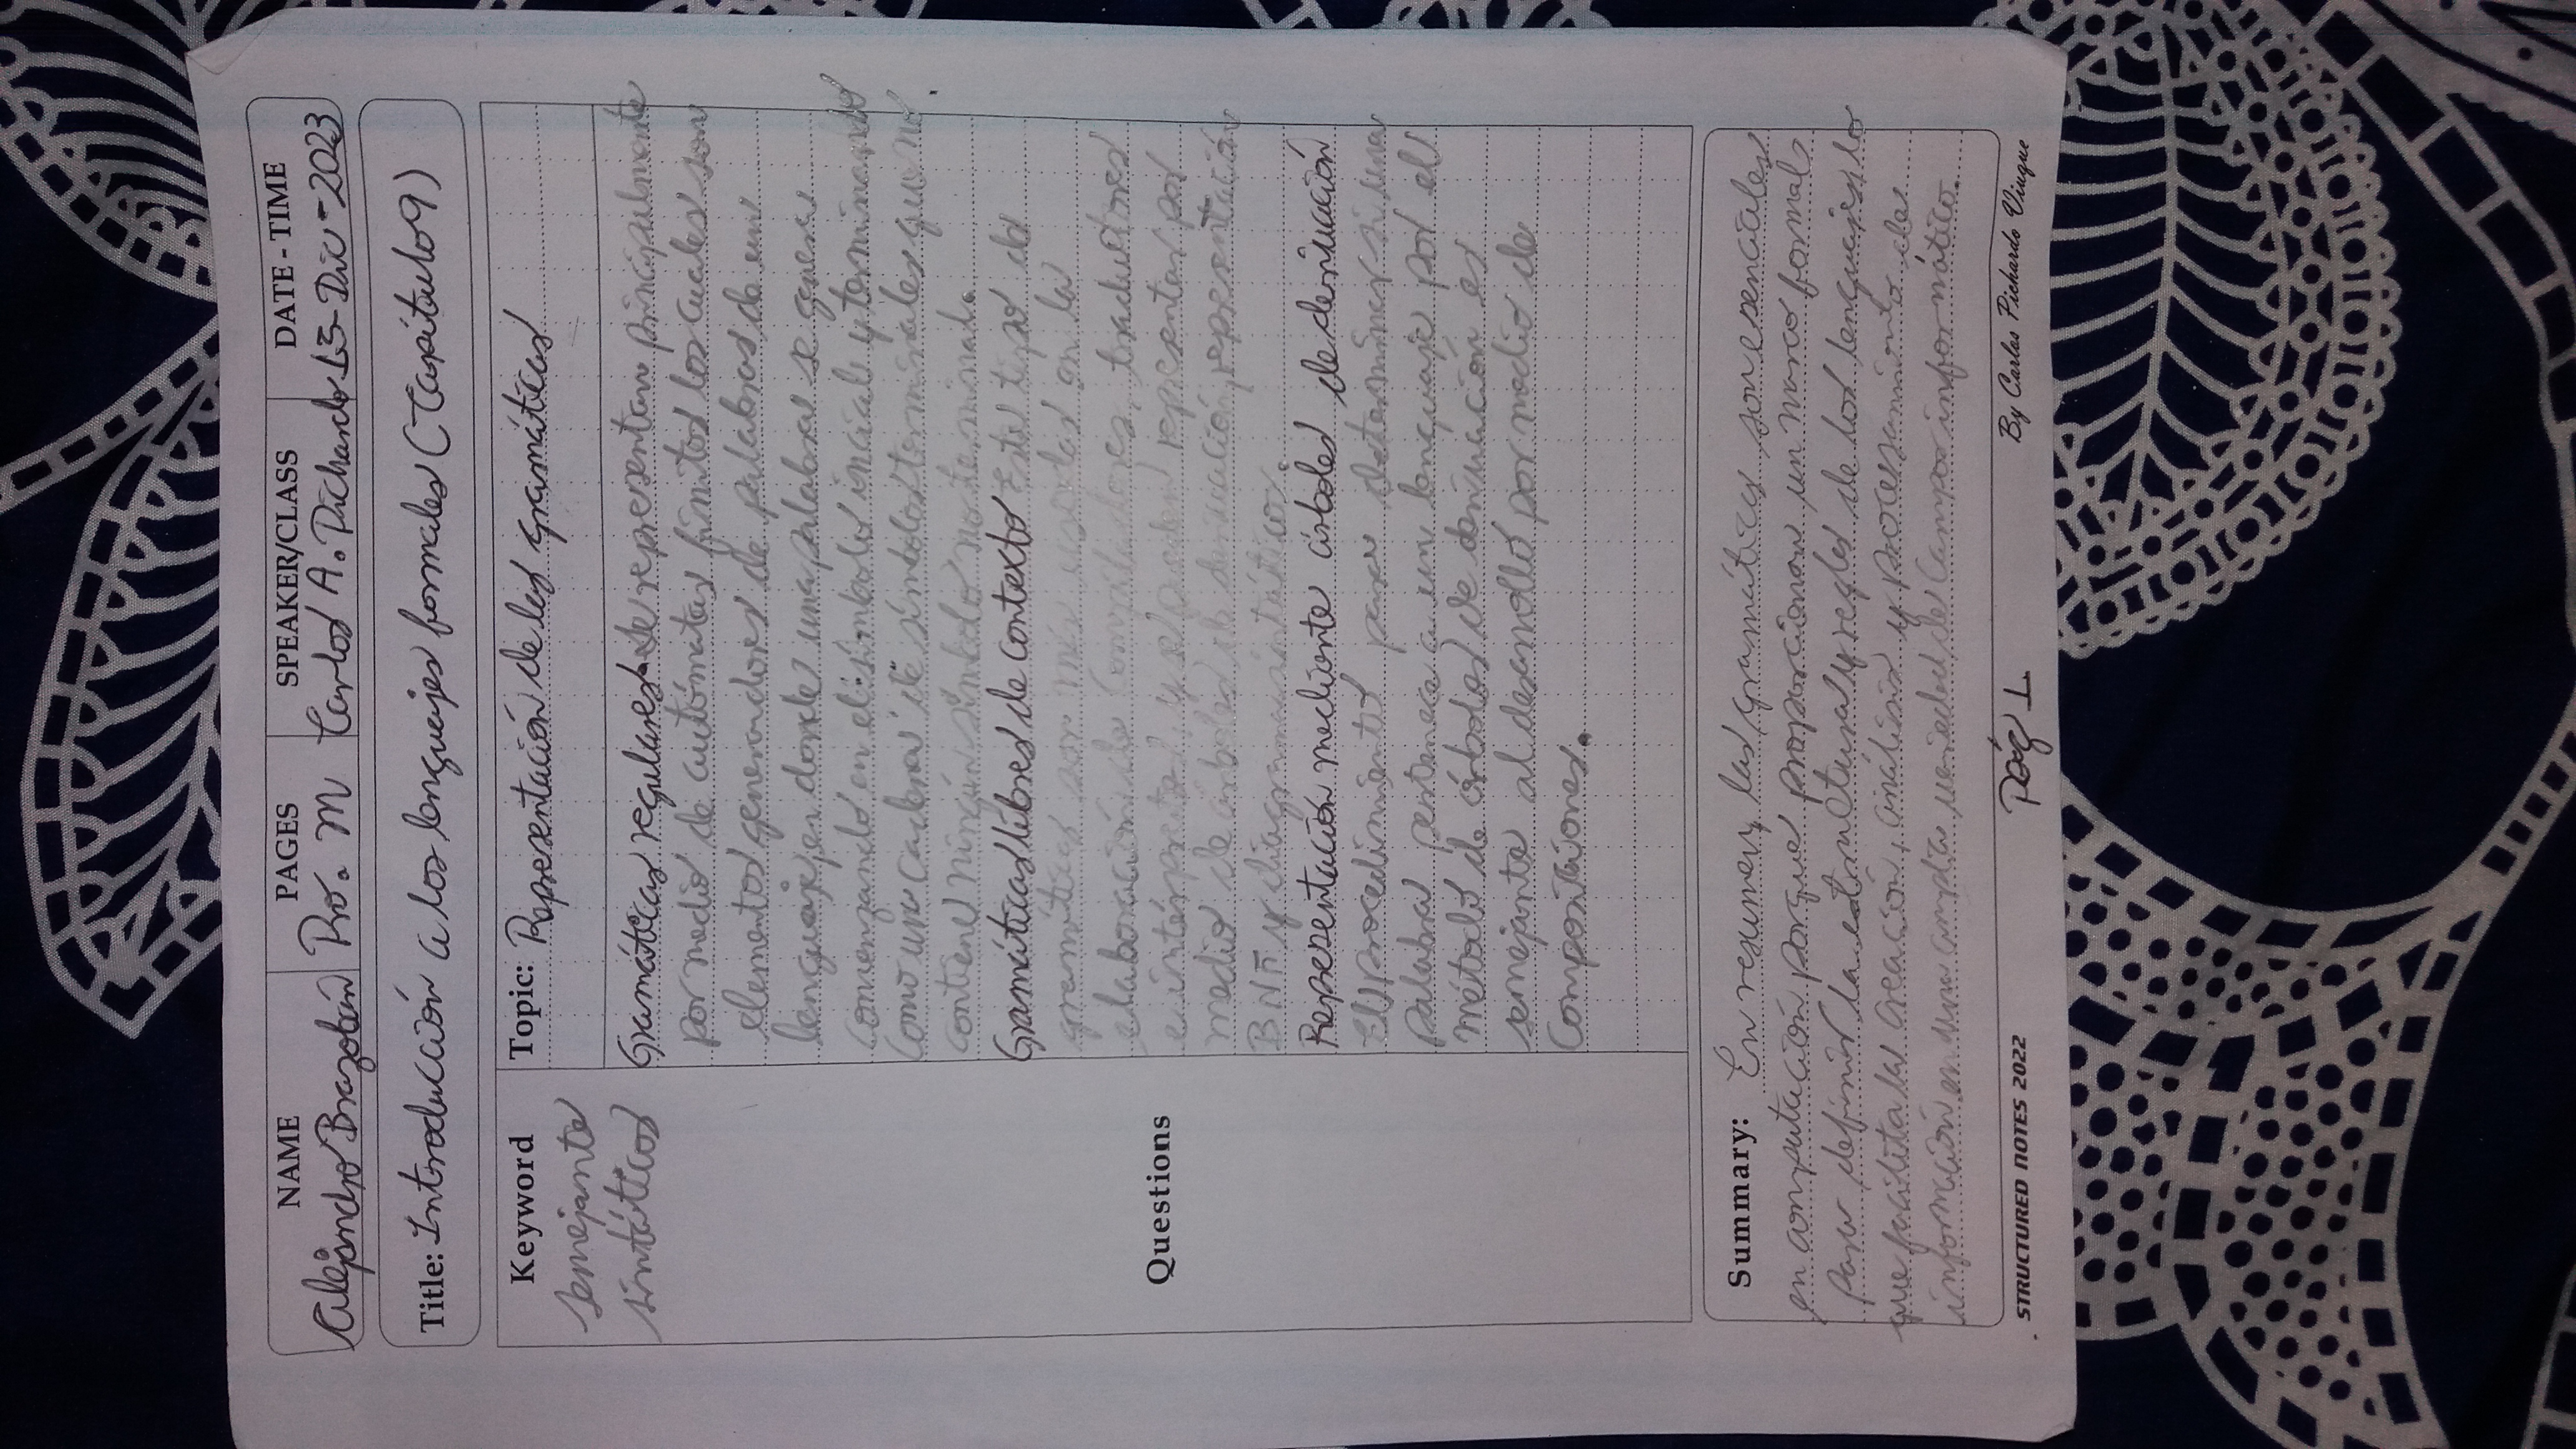 NAME PAGES SPEAKER/CLASS DATE - TIME
Alejandro Brazobán Pro. M Carlos A. Pichardo 15-Dic-2023
Title: Introducción a los lenguajes formales (Capítulo 9)
Keyword
semejante
sintáticos
Questions
Topic: Representación de las gramáticas
Gramáticas regulares. Se representan principalmente
por medio de autómatas finitos los cuales son
elementos generadores de palabras de un
lenguaje, en donde una palabra se genera
comenzando en el símbolo incial y terminando
como una cadena de símbolos terminales que no
contiene ningún símbolo no terminal.
Gramáticas libres de contexto Este tipo de
gramáticas son más usadas en la
elaboración de compiladores, traductores
e intérpretes, y se pueden representar por
medio de árboles de derivación, representación
BNF y diagramas sintáticos.
Representación mediante árboles de derivación
El procedimiento para determinar si una
palabra pertenece a un lenguaje por el
método de árboles de derivación es
semejante al desarrollo por medio de
composiciones.
Summary: En resumen, las gramáticas son esenciales
en computación porque proporcionan un marco formal
para definir la estructura y reglas de los lenguajes, lo
que facilita la creación, análisis y procesamiento de
información en una amplia variedad de campos informático.
STRUCTURED NOTES 2022 Pág 1 By Carlos Pichardo Viuque